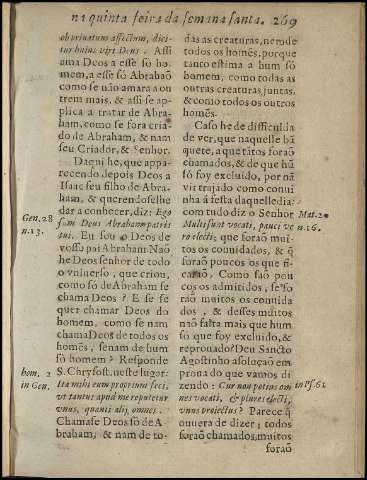 na quinta feira da semana santa. 269
ob priuatum affectum, dici-
tur huius viri Deus. Assi
ama Deos a esse só ho
mem, a esse só Abrahaõ
como se não amara a ou
trem mais, & assi se ap-
plica a tratar de Abra-
ham, como se fora cria-
do de Abraham, & nam
seu Criador, & Senhor.
Daqui he, que appa-
recendo depois Deos a
Isaac seu filho de Abra-
ham, & querendoselhe
dar a conhecer, diz: Ego
sum Deus Abraham patris
tui. Eu sou o Deos de
vosso pai Abraham Naõ
he Deos senhor de todo
o vniuerso, que criou,
como só de Abraham se
chama Deos? E se se
quer chamar Deos do
homem, como se nam
chama Deos de todos os
homẽs, senam de hum
só homem? Responde
S. Chrysost. neste lugar:
Ita mihi eum proprium feci,
vt tantus apud me reputetur
vnus, quanti alij omnes.
Chamase Deos só de A-
braham, & nam de to-
Gen. 28
n. 13.
hom. 2
in Gen.
das as creaturas, nem de
todos os homẽs, porque
tanto estima a hum só
homem, como todas as
outras creaturas juntas,
& como todos os outros
homẽs.
Caso he de difficuldade
de ver, que naquelle bã
quete, aque tãtos foraõ
chamados, & de que hũ
só foy excluido, por nã
vir trajado como conui
nha á festa daquelle dia:
com tudo diz o Senhor
Multi sunt vocati, pauci ve
ro electi; que foraõ mui-
tos os conuidados, & q̃
foraõ poucos os que fi-
caraõ. Como saõ pou
cos os admitidos, se fo
raõ muitos os conuida
dos, & desses muitos
naõ falta mais que hum
só que foy excluido, &
reprouado? Deu Sancto
Agostinho a solução em
prona do que vamos di
zendo: Cur non potius om
nes vocati, & plures electi,
vnus proiectus? Parece q̃
ouuera de dizer; todos
foraõ chamados, muitos
foraõ
Mat. 20
n. 16.
in Ps. 61